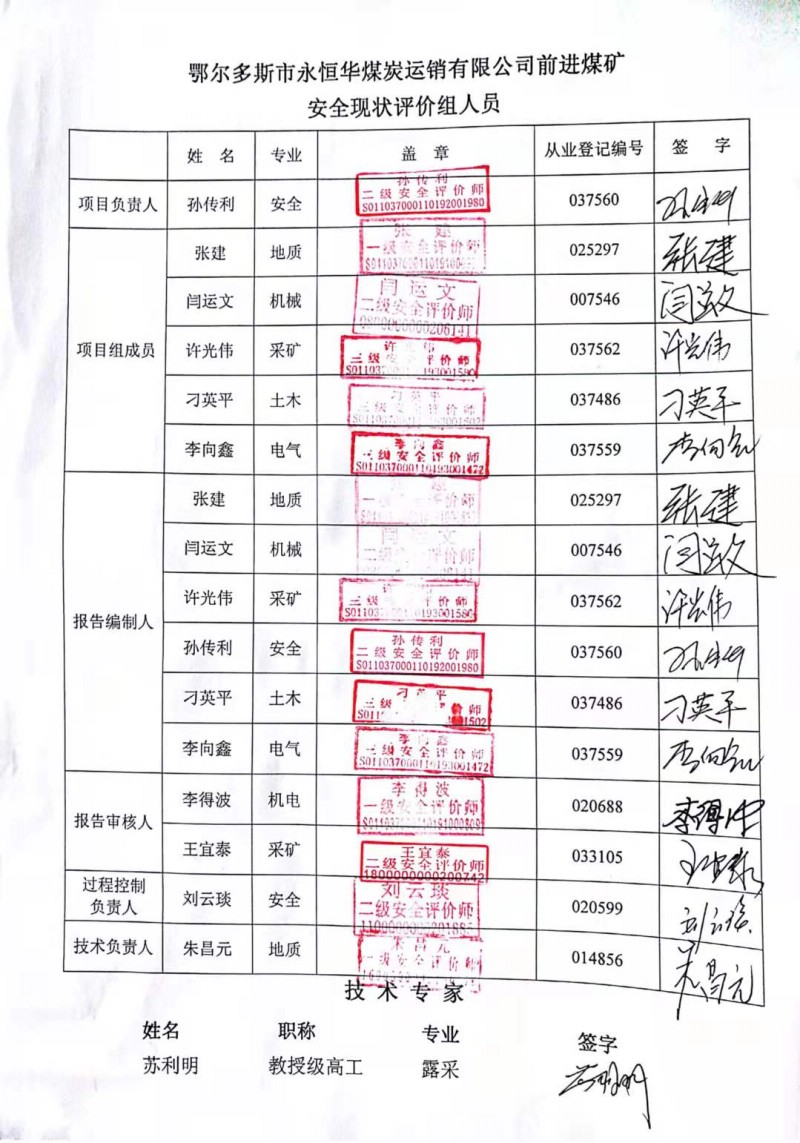 鄂尔多斯市永恒华煤炭运销有限公司前进煤矿
安全现状评价组人员
姓 名 专业 盖 章 从业登记编号 签 字
项目负责人 孙传利 安全 037560
孙传利
二级安全评价师
S011037000110192001980
项目组成员
张建 地质 025297 张建
张 建
一级安全评价师
闫运文 机械 007546 闫运文
闫运文
二级安全评价师
许光伟 采矿 037562 许光伟
三级安全评价师
刁英平 土木 037486 刁英平
刁英平
三级安全评价师
李向鑫 电气 037559 李向鑫
李向鑫
三级安全评价师
S011037000110193001472
报告编制人
张建 地质 025297 张建
一级安全评价师
闫运文 机械 007546 闫运文
闫运文
二级安全评价师
许光伟 采矿 037562 许光伟
三级安全评价师
孙传利 安全 037560
孙传利
二级安全评价师
S011037000110192001980
刁英平 土木 037486 刁英平
李向鑫 电气 037559 李向鑫
李向鑫
三级安全评价师
S011037000110193001472
报告审核人
李得波 机电 020688 李得波
李得波
一级安全评价师
王宜泰 采矿 033105 王宜泰
王宜泰
二级安全评价师
1800000000200742
过程控制
负责人
刘云琰 安全 020599 刘云琰
刘云琰
二级安全评价师
技术负责人 朱昌元 地质 014856 朱昌元
朱昌元
一级安全评价师
技 术 专 家
姓名 职称 专业 签字
苏利明 教授级高工 露采 苏利明